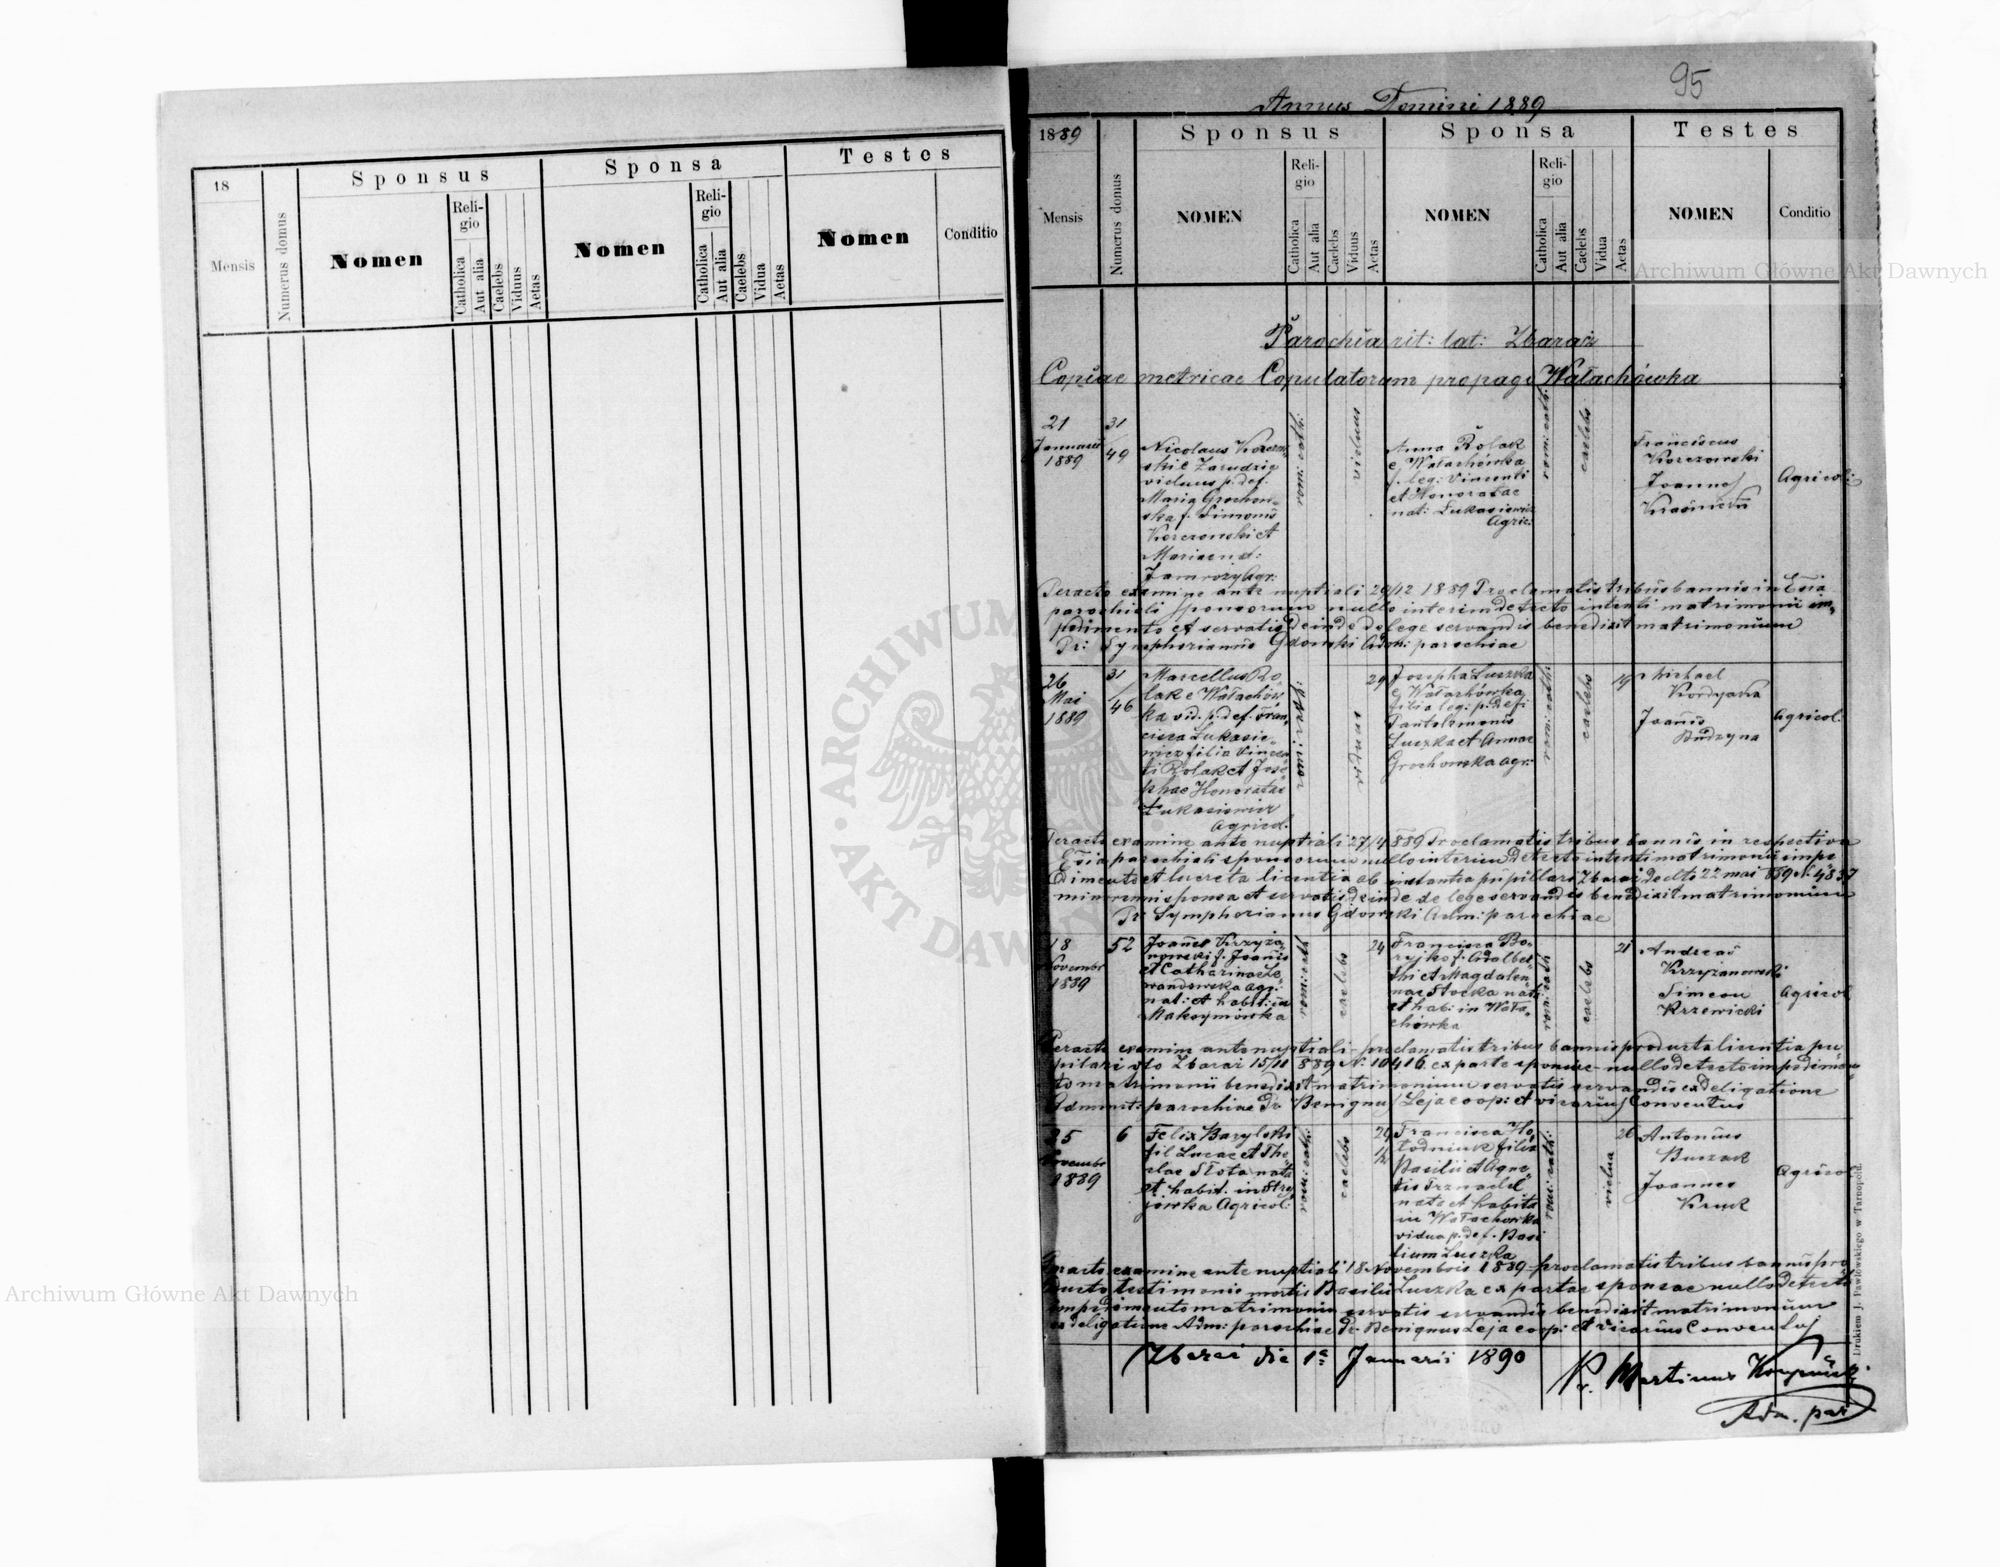 18
Mensis
Numerus domus
Sponsus
Nomen
Reli-
gio
Catholica
Aut alia
Caelebs
Viduus
Aetas
Sponsa
Nomen
Reli-
gio
Catholica
Aut alia
Caelebs
Vidua
Aetas
Testes
Nomen
Conditio
95
Annus Domini 1889
1889
Mensis
Numerus domus
Sponsus
NOMEN
Reli-
gio
Catholica
Aut alia
Caelebs
Viduus
Aetas
Sponsa
NOMEN
Reli-
gio
Catholica
Aut alia
Caelebs
Vidua
Aetas
Testes
NOMEN
Conditio
Archiwum Główne Akt Dawnych
Parochia rit: lat: Zbaraż
Copiae metricae Copulatorum propago Wałachówka
21
Januarii
1889
31
49
Nicolaus Korczow
ski e Zarudzie
viduus p. def.
Maria Grochow
ska f. Simonis
Korczowski et
Mariae nd:
Jamrozy Agr:
viduus
Anna Rolak
e Wałachówka
f. leg: Vincenti
et Honoratae
nat: Lukasiewicz
Agric:
rom: cath:
caelebs
Franciscus
Korczowski
Joannes
Agricoli
Peracto examine ante nuptiali 29/12 1889 Proclamatis tribus bannis in Ecsia
parochiali sponsorum nullo interim detecto intenti matrimonii im
pedimento et servatis deinde de lege servandis benedixit matrimonium
Pr: Symphorianus Gdowski Adm: parochiae
26
Mai
1889
31
46
Marcellus Ro
lak e Wałachów
ka vid. p. def. Fran
cisca Lukasie
wicz filia Vincen
ti Rolak et Jose
phae Honoratae
Łukasiewicz
Agricol.
viduus
29
Josepha Luszka
e Wałachówka
filia leg: p. defi
Pantelemonis
Luszka et Annae
Grochowska agr:
rom: cath:
caelebs
19
Michael
Kordyaka
Joannis
Budzyna
Agricol:
Peracto examine ante nuptiali 27/4 889 Proclamatis tribus bannis in respectiva
Ecsia parochiali sponsorum nullo interim detecto intenti matrimonii impe
dimento et lucreta licentia ab instantia pupillari Zbaraż de dto 22 mai 889 N. 4837
minorennis sponsa et servatis deinde de lege servandis benedixit matrimonium
Pr: Symphorianus Gdowski Adm: parochiae
18
Novembr
1889
52
Joannes Krzyża
nowski f. Joannis
et Catharinae Le
wandowska Agr:
nat: et habit: in
Maksymówka
rom: cath
caelebs
24
Francisca Bo
ryjko f. Adalber
thi et Magdalen
nae Stocka nati
et hab: in Wała
chówka
rom: cath
caelebs
21
Andreas
Krzyżanowski
Simeon
Krzewicki
Agricol
Peracto examine ante nuptiali proclamatis tribus bannis producta licentia pu
pilari dto Zbaraż 15/11 889 N. 10416 ex parte sponsae nullo detecto impedimen
to matrimonii benedixit matrimonium servatis servandis ex deligatione
Administ: parochiae Pr. Benignus Leja coop: et vicarius Conventus
25
Novembr
1889
6
Felix Barylski
fil Lucae et The
clae Słota nata
et habit. in Stry
jowka Agricol:
rom: cath:
caelebs
29
1/2
Francisca Ho
łodniuk filia
Basilii et Agne
tis Trznadel
nata et habita
in Wałachowka
vidua p. def. Basi
lium Luszka
rom: cath:
vidua
26
Antonius
Burzak
Joannes
Kruk
Agricol
Peracto examine ante nuptiali 18 Novembris 1889 proclamatis tribus bannis pro
ducto testimonio mortis Basilii Luszka ex partae sponsae nullo detecto
impedimento matrimonii servatis servandis benedixit matrimonium
ex deligatione Adm: parochiae Pr. Benignus Leja coop: et vicarius Conventus
Zbaraż die 1a Januarii 1890
Pr. Martinus
Adm. par
Drukiem J. Pawłowskiego w Tarnopolu.
Archiwum Główne Akt Dawnych
ARCHIWUM
AKT DAWNYCH